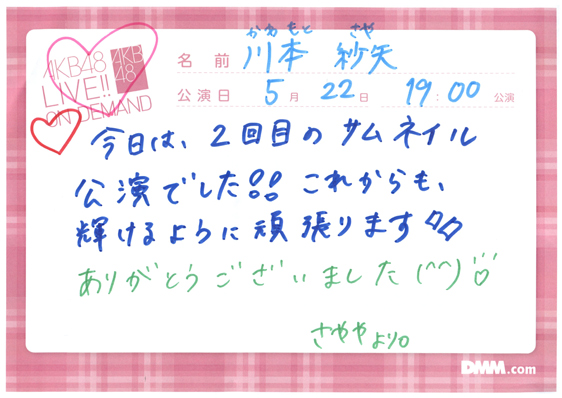 AKB48
LIVE!!
ON DEMAND
AKB
48
かわもと さや
名前 川本 紗矢
公演日 5月 22日 19:00 公演
今日は、2回目のサムネイル
公演でした!! これからも、
輝けるように頑張ります
ありがとうございました (^^)
さややより。
DMM.com